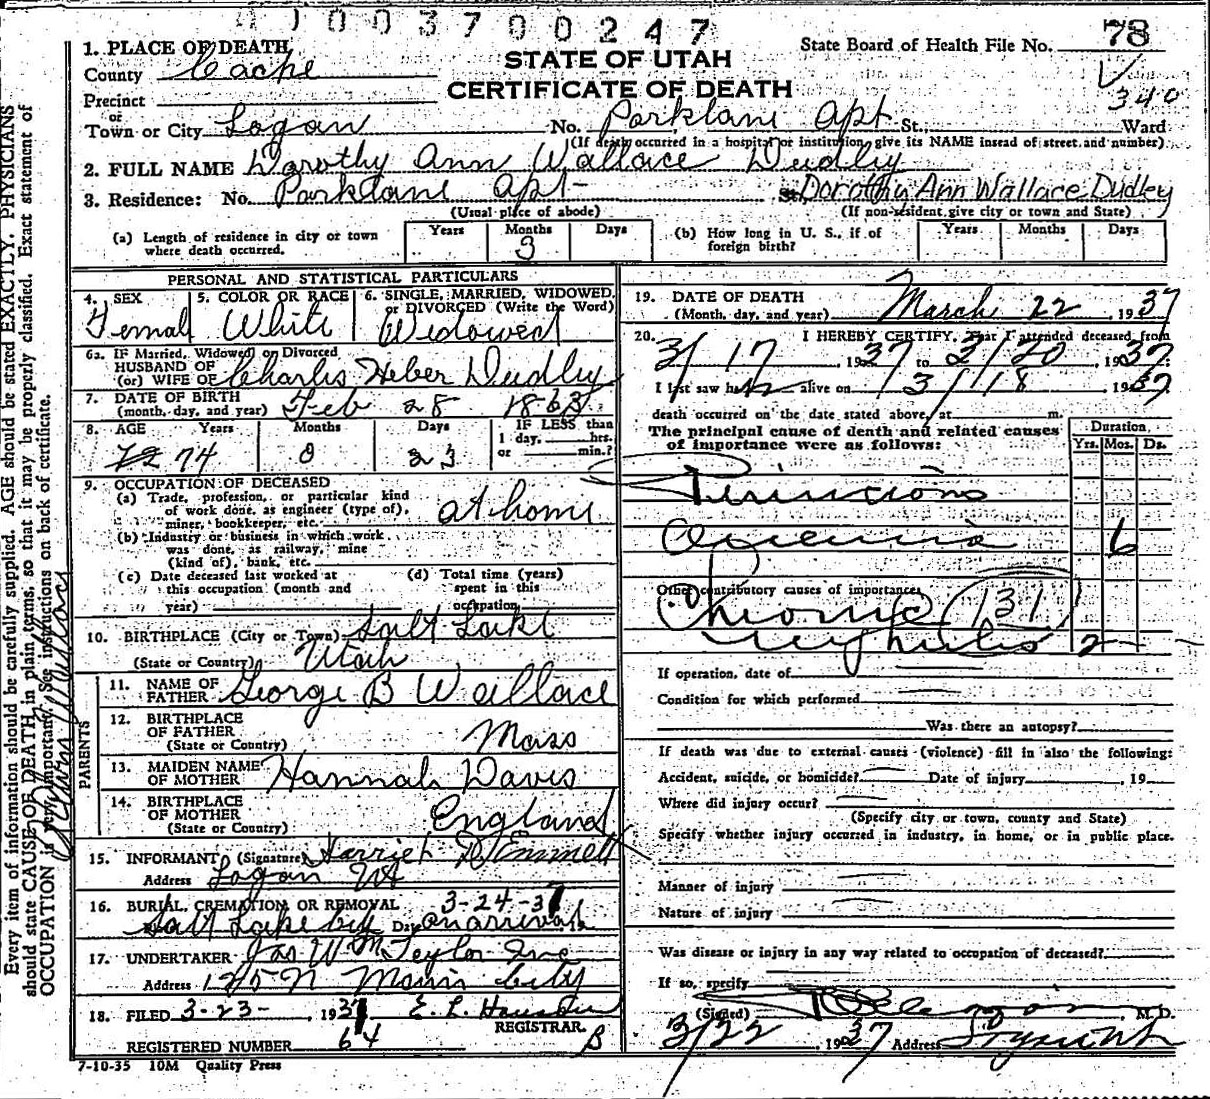 0100370 0247
State Board of Health File No. 78
340
STATE OF UTAH
CERTIFICATE OF DEATH
1. PLACE OF DEATH
County Cache
Precinct
or
Town or City Logan No. Parklani Apt St., Ward
(If death occurred in a hospital or institution, give its NAME insead of street and number)
2. FULL NAME Dorothy Ann Wallace Dudley
3. Residence: No. Parklani Apt- St. Dorothy Ann Wallace Dudley
(Usual place of abode) (If non-resident give city or town and State)
(a) Length of residence in city or town where death occurred. Years Months 3 Days
(b) How long in U. S., if of foreign birth? Years Months Days
PERSONAL AND STATISTICAL PARTICULARS
4. SEX Femal
5. COLOR OR RACE White
6. SINGLE, MARRIED, WIDOWED, or DIVORCED (Write the Word) Widowed
6a. IF Married, Widowed or Divorced
HUSBAND OF
(or) WIFE OF Charles Heber Dudley
7. DATE OF BIRTH
(month, day, and year) Feb 28 1863
8. AGE Years Months Days IF LESS than
1 day, hrs.
or min.?
72 74 0 23
9. OCCUPATION OF DECEASED
(a) Trade, profession, or particular kind of work done, as engineer (type of), miner, bookkeeper, etc. at home
(b) Industry or business in which work was done, as railway, mine (kind of), bank, etc.
(c) Date deceased last worked at this occupation (month and year)
(d) Total time (years) spent in this occupation
10. BIRTHPLACE (City or Town) Salt Lake
(State or Country) Utah
PARENTS
11. NAME OF FATHER George B Wallace
12. BIRTHPLACE OF FATHER
(State or Country) Mass
13. MAIDEN NAME OF MOTHER Hannah Davis
14. BIRTHPLACE OF MOTHER
(State or Country) England
15. INFORMANT (Signature) Harriet D. Emmett
Address Logan Ut
16. BURIAL, CREMATION OR REMOVAL 3-24-37
Salt Lake City Date on arrival
17. UNDERTAKER Jas Wm Teylor Inc
Address 125 N Main City
18. FILED 3-23- 1937 E. L.
REGISTRAR.
REGISTERED NUMBER 64 B
7-10-35 10M Quality Press
19. DATE OF DEATH
(Month, day, and year) March 22 1937
20. I HEREBY CERTIFY, That I attended deceased from
3/17 1937 to 3/20 1937
I last saw h alive on 3/18 1937
death occurred on the date stated above, at m.
The principal cause of death and related causes of importance were as follows:
Duration
Yrs. Mos. Ds.
Pernicious
Anemia 6
Other contributory causes of importance
Chronic 131
Nephritis 2
If operation, date of
Condition for which performed
Was there an autopsy?
If death was due to external causes (violence) fill in also the following:
Accident, suicide, or homicide? Date of injury 19
Where did injury occur?
(Specify city or town, county and State)
Specify whether injury occurred in industry, in home, or in public place.
Manner of injury
Nature of injury
Was disease or injury in any way related to occupation of deceased?
If so, specify
(Signed) M.D.
3/22 1937 Address
Every item of information should be carefully supplied. AGE should be stated EXACTLY. PHYSICIANS
should state CAUSE OF DEATH in plain terms, so that it may be properly classified. Exact statement of
OCCUPATION is very important. See instructions on back of certificate.